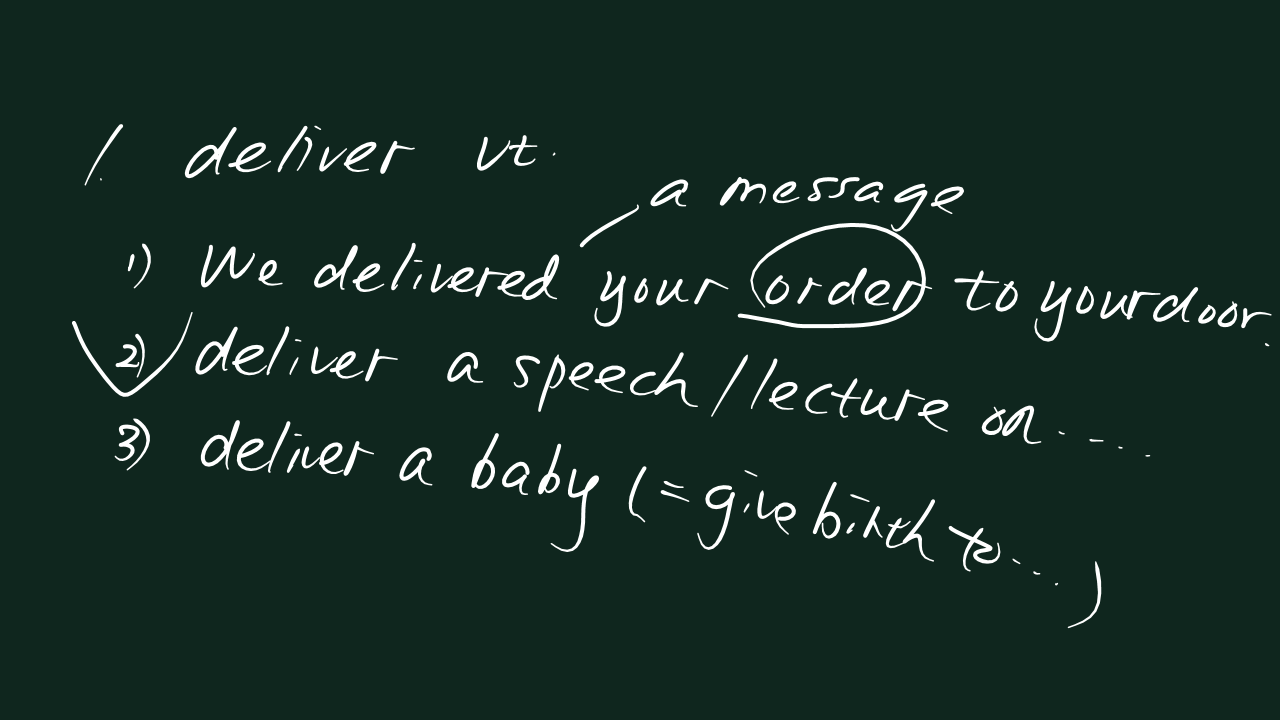 1. deliver vt.
a message
1) We delivered your order to your door.
2) deliver a speech/lecture on....
3) deliver a baby (=give birth to...)